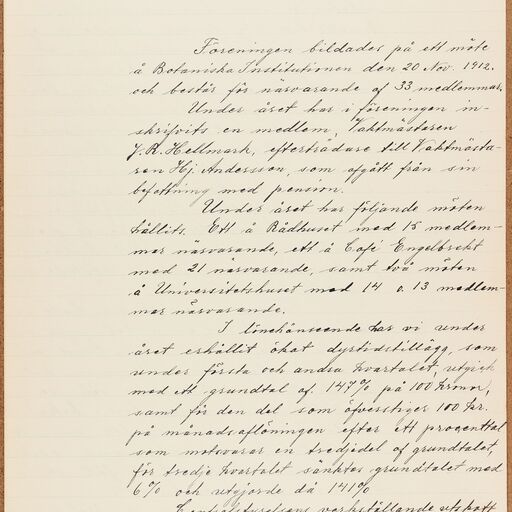 Föreningen bildades på ett möte
å Botaniska Institutionen den 20 Nov. 1912.
och består för närvarande af 33 medlemmar.
Under året har i föreningen in-
skrifvits en medlem, Vaktmästaren
J. R. Hellmark, efterträdare till Vaktmästa-
ren Hj. Andersson, som afgått från sin
befattning med pension.
Under året har följande möten
hållits. Ett å Rådhuset med 15 medlem-
mar närvarande, ett å Café Engelbrekt
med 21 närvarande, samt två möten
å Universitetshuset med 14 o. 13 medlem-
mar närvarande.
I lönehänseende har vi under
året erhållit ökat dyrtidstillägg, som
under första och andra kvartalet, utgick
med ett grundtal af. 147% på 100 kronor,
samt för den del som öfverstiger 100 kr.
på månadsaflöningen efter ett procenttal
som motsvarar en tredjedel af grundtalet,
för tredje kvartalet sänktes grundtalet med
6% och utgjorde då 141%
Centralstyrelsens verkställande utskott